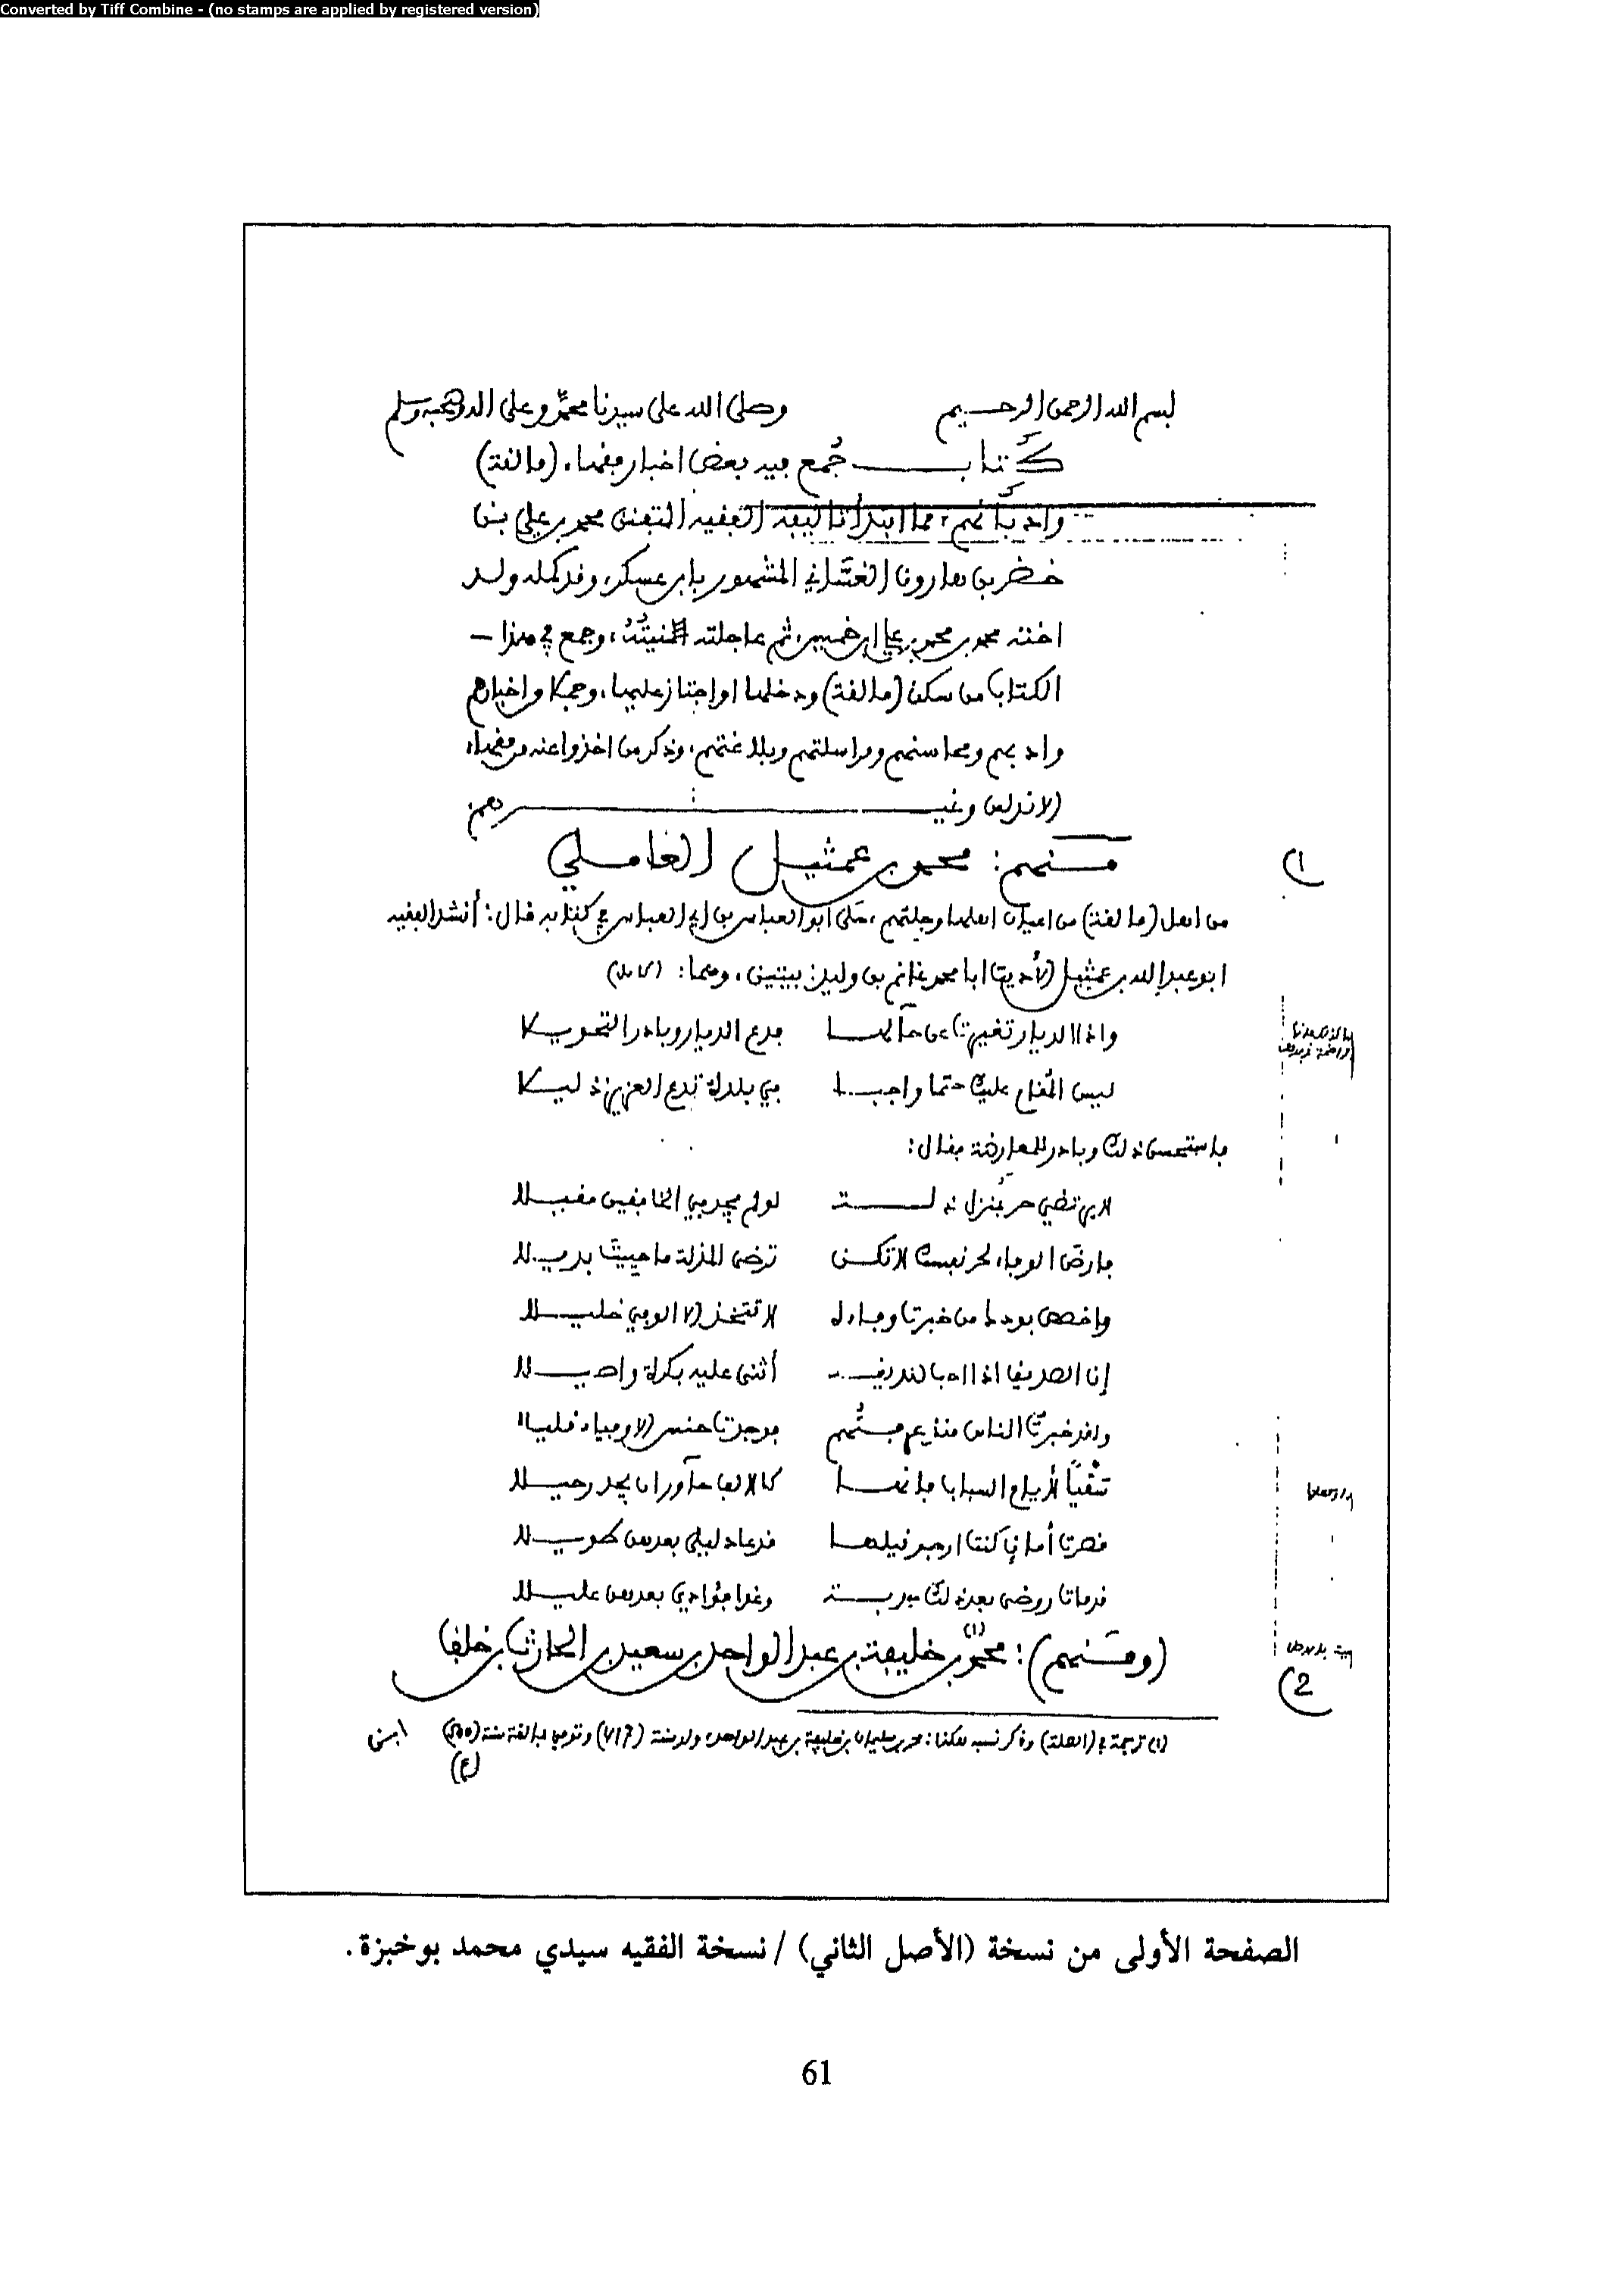 Converted by Tiff Combine - (no stamps are applied by registered version)
بسم الله الرحمن الرحيم وصلى الله على سيدنا محمد وعلى آله وصحبه وسلم
كتاب جُمع فيه بعض اخبار فقهاء (مالقة)
وادبائهم، مما ابتدأ تاليفه الفقيه المتفنن محمد بن علي بن
خضر بن هارون الغسَّاني المشهور بابن عسكر، وقد كمله ولد
اخته محمد بن محمد بن علي ابن خميس، ثم عاجلته المنيّة، وجمع في هذا –
الكتاب من سكن (مالقة) ودخلها او اجتاز عليها، وحكا واخبارهم
وادبهم ومحاسنهم ومراسلتهم وبلاغتهم، وذكر من اخذوا عنه من فقهاء
الاندلس وغيرهم
1) منهم: محمد بن عمثيل العاملي
من اهل (مالقة) من اعيان اهلها وجلتهم، حكى ابو العباس بن ابي العباس في كتابه قال: أنشد الفقيه
ابو عبد الله بن عمثيل الأديب ابا محمد غانم بن وليد: بيتين، وهما: (كامل)
واذا الديار تغيرت عن حالها فدع الديار وبادر التحويلا
ليس المُقام عليك حتما واجبا في بلدة تدع العزيز ذليلا
فاستحسن ذلك وبادر للمعارضة فقال:
لا يرتضي حر بمنزل ذلة لو لم يجد في الخافقين مقيلا
فارض الوفاء لحر نفسك لا تكن ترضى المذلة ما حييت بديلا
واخصص بودك من خبرت وفاءه لا تتخذ إلا الوفي خليلا
أثنى عليه بكرة واصيلا
ولقد خبرت الناس منذ عرفتهم فوجدت جنس الاوفياء قليلا
سقيًا لأيام الشباب فانها
قصرت أماني كنت ارجو نيلها قد عاد ليلي بعدهن طويلا
وغدا فؤادي بعدهن عليلا
2) (ومنهم): محمد(1) بن خليفة بن عبد الواحد بن سعيد بن الحارث بن خلف
(1) ترجمة في (الصلة) وذكر نسبه هكذا: محمد بن سليمان بن خليفة بن عبد الواحد، ولد سنة (417) وتوفي بمالقة سنة (500) ابن
(ع)
الصفحة الأولى من نسخة (الأصل الثاني) / نسخة الفقيه سيدي محمد بوخبزة.
61